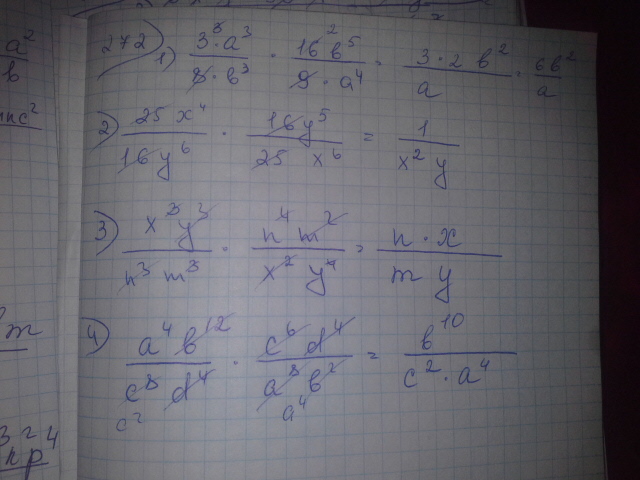 272
1) 3³·a³/8·b³ · 16²b⁵/9·a⁴ = 3·2b²/a = 6b²/a
2) 25x⁴/16y⁶ · 16y⁵/25x⁶ = 1/x²y
3) x³y³/n³m³ · n⁴m²/x²y⁴ = n·x/my
4) a⁴b¹²/c⁸d⁴ · c⁶d⁴/a⁸b² = b¹⁰/c²·a⁴
c² a⁴
a²
b
m
3 2 4